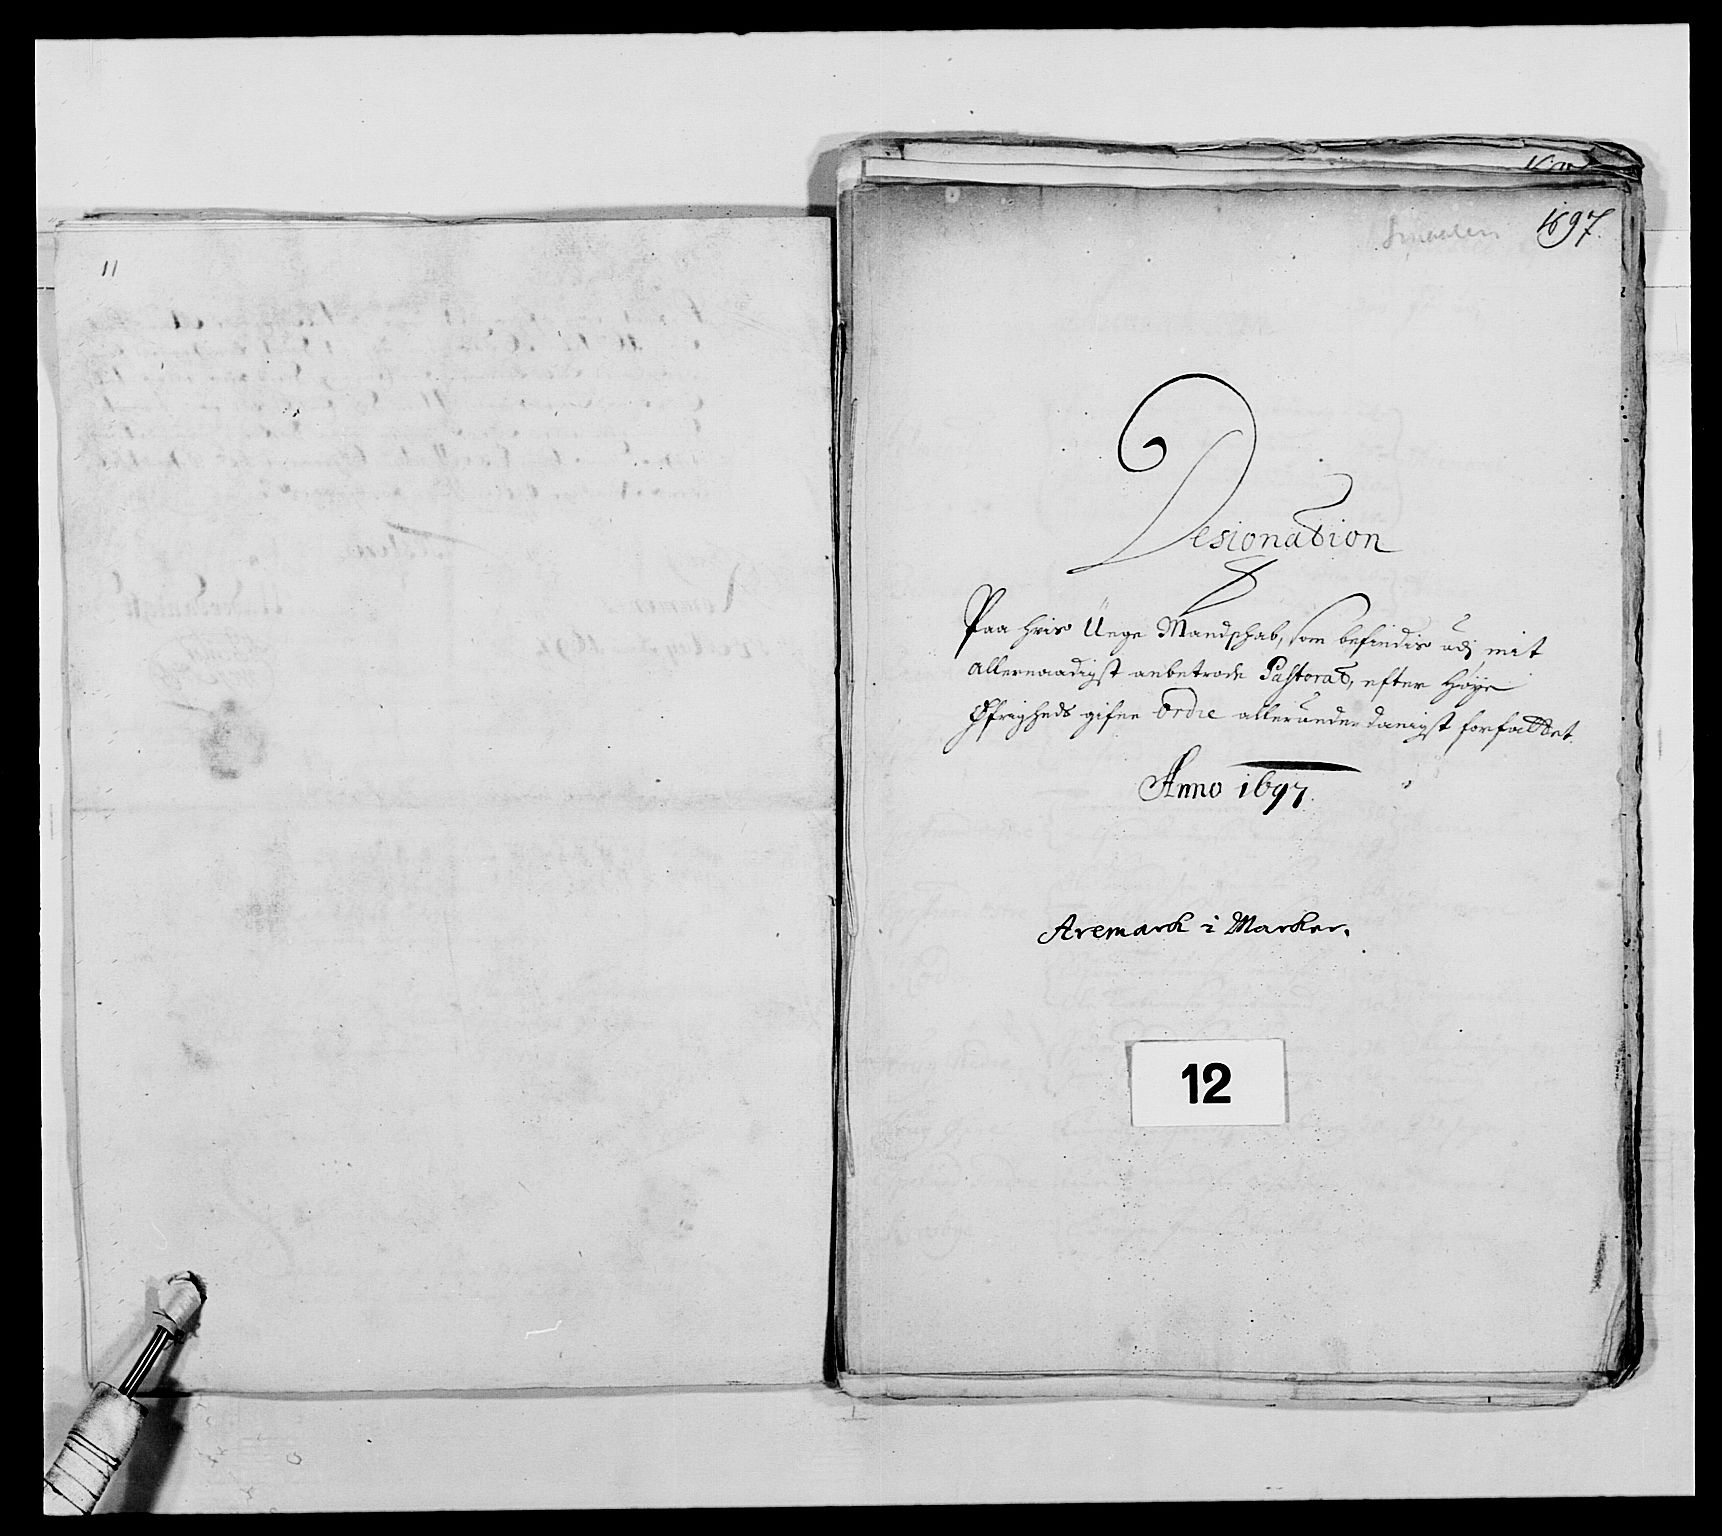 11
1697.
Smaalen
Designation
Paa hvis Unge Mandschab, som befindis udj mit
allernaadigst anbetrode Pastorat, efter Høye
Øfrigheds gifne Ordre allerunderdanigst forfattet.
Anno 1697.
Aremark i Marker.
12